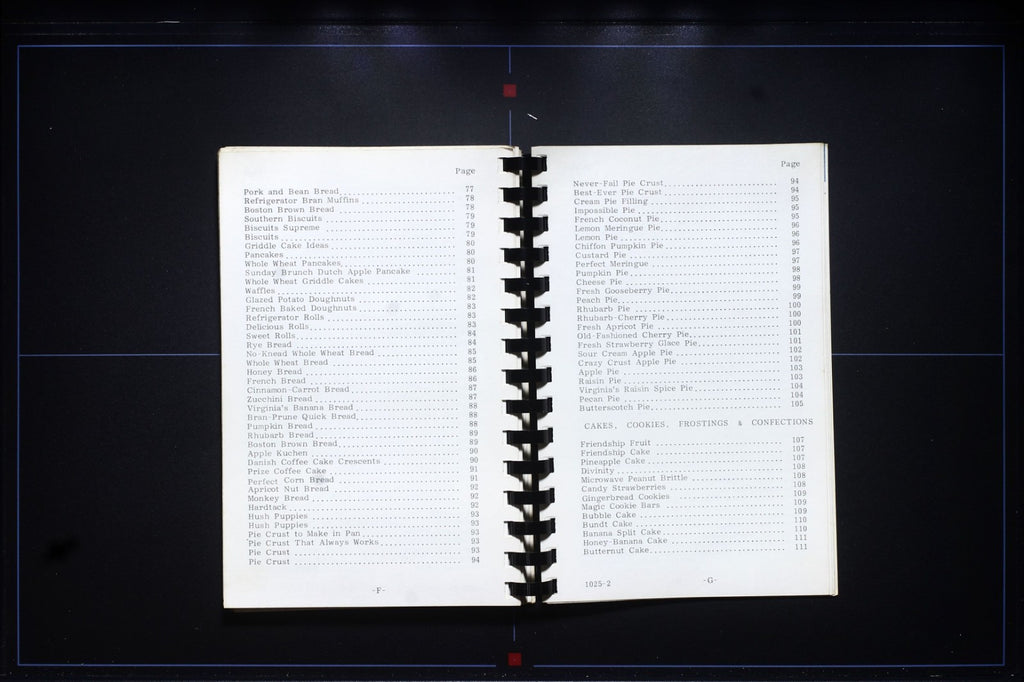 Page
Pork and Bean Bread 77
Refrigerator Bran Muffins 78
Boston Brown Bread 78
Southern Biscuits 79
Biscuits Supreme 79
Biscuits 79
Griddle Cake Ideas 80
Pancakes 80
Whole Wheat Pancakes 80
Sunday Brunch Dutch Apple Pancake 81
Whole Wheat Griddle Cakes 81
Waffles 82
Glazed Potato Doughnuts 82
French Baked Doughnuts 83
Refrigerator Rolls 83
Delicious Rolls 83
Sweet Rolls 84
Rye Bread 84
No-Knead Whole Wheat Bread 85
Whole Wheat Bread 85
Honey Bread 86
French Bread 86
Cinnamon-Carrot Bread 87
Zucchini Bread 87
Virginia's Banana Bread 88
Bran-Prune Quick Bread 88
Pumpkin Bread 88
Rhubarb Bread 89
Boston Brown Bread 89
Apple Kuchen 90
Danish Coffee Cake Crescents 90
Prize Coffee Cake 91
Perfect Corn Bread 91
Apricot Nut Bread 92
Monkey Bread 92
Hardtack 92
Hush Puppies 93
Hush Puppies 93
Pie Crust to Make in Pan 93
Pie Crust That Always Works 93
Pie Crust 93
Pie Crust 94
-F-
Page
Never-Fail Pie Crust 94
Best-Ever Pie Crust 94
Cream Pie Filling 95
Impossible Pie 95
French Coconut Pie 95
Lemon Meringue Pie 96
Lemon Pie 96
Chiffon Pumpkin Pie 96
Custard Pie 97
Perfect Meringue 97
Pumpkin Pie 98
Cheese Pie 98
Fresh Gooseberry Pie 99
Peach Pie 99
Rhubarb Pie 100
Rhubarb-Cherry Pie 100
Fresh Apricot Pie 100
Old-Fashioned Cherry Pie 101
Fresh Strawberry Glace Pie 101
Sour Cream Apple Pie 102
Crazy Crust Apple Pie 102
Apple Pie 103
Raisin Pie 103
Virginia's Raisin Spice Pie 104
Pecan Pie 104
Butterscotch Pie 105
CAKES, COOKIES, FROSTINGS & CONFECTIONS
Friendship Fruit 107
Friendship Cake 107
Pineapple Cake 107
Divinity 108
Microwave Peanut Brittle 108
Candy Strawberries 108
Gingerbread Cookies 109
Magic Cookie Bars 109
Bubble Cake 109
Bundt Cake 110
Banana Split Cake 110
Honey-Banana Cake 111
Butternut Cake 111
1025-2
-G-